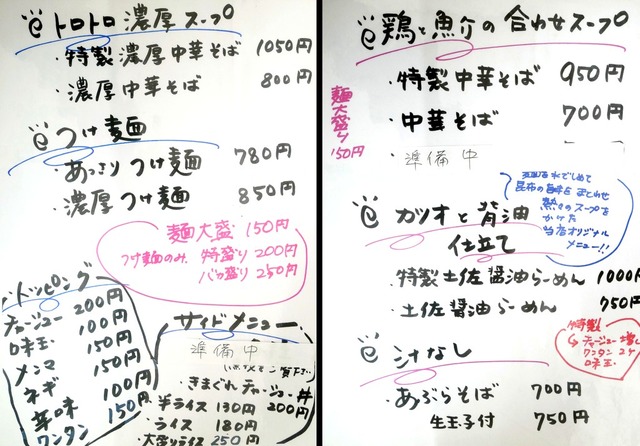 トロトロ濃厚スープ
・特製濃厚中華そば 1050円
・濃厚中華そば 800円
つけ麺
・あっさりつけ麺 780円
・濃厚つけ麺 850円
麺大盛 150円
つけ麺のみ 特盛り 200円
バカ盛り 250円
トッピング
チャーシュー 200円
味玉 100円
メンマ 150円
ネギ 150円
薬味 100円
ワンタン 150円
サイドメニュー
準備中
・きまぐれチャーシュー丼 200円
・半ライス 130円
・ライス 180円
・大盛りライス 250円
鶏と魚介の合わせスープ
・特製中華そば 950円
・中華そば 700円
・準備中
麺大盛り 150円
カツオと背油
仕立て
水でしめて
昆布の
熱々のスープを
かけた
当店オリジナル
メニュー!!
・特製土佐醤油らーめん 1000円
・土佐醤油らーめん 750円
汁なし
・あぶらそば 700円
生玉子付 750円
特製
チャーシュー増し
ワンタン2ケ
味玉